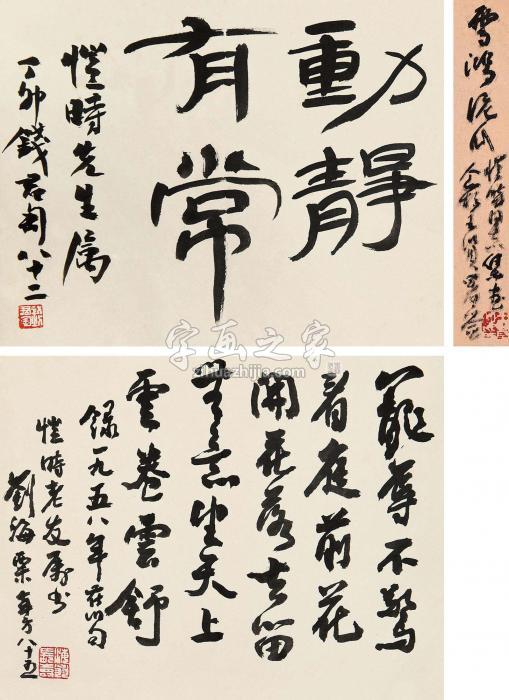 動靜
有常
愷時先生属
丁卯錢君匋八十二
雪鴻泥爪
字画之家
zihuazhijia.com
寵辱不驚
看庭前花
開花落去留
無意望天上
雲卷雲舒
錄一九五八年舊句
愷時老友属書
劉海粟年方八十五